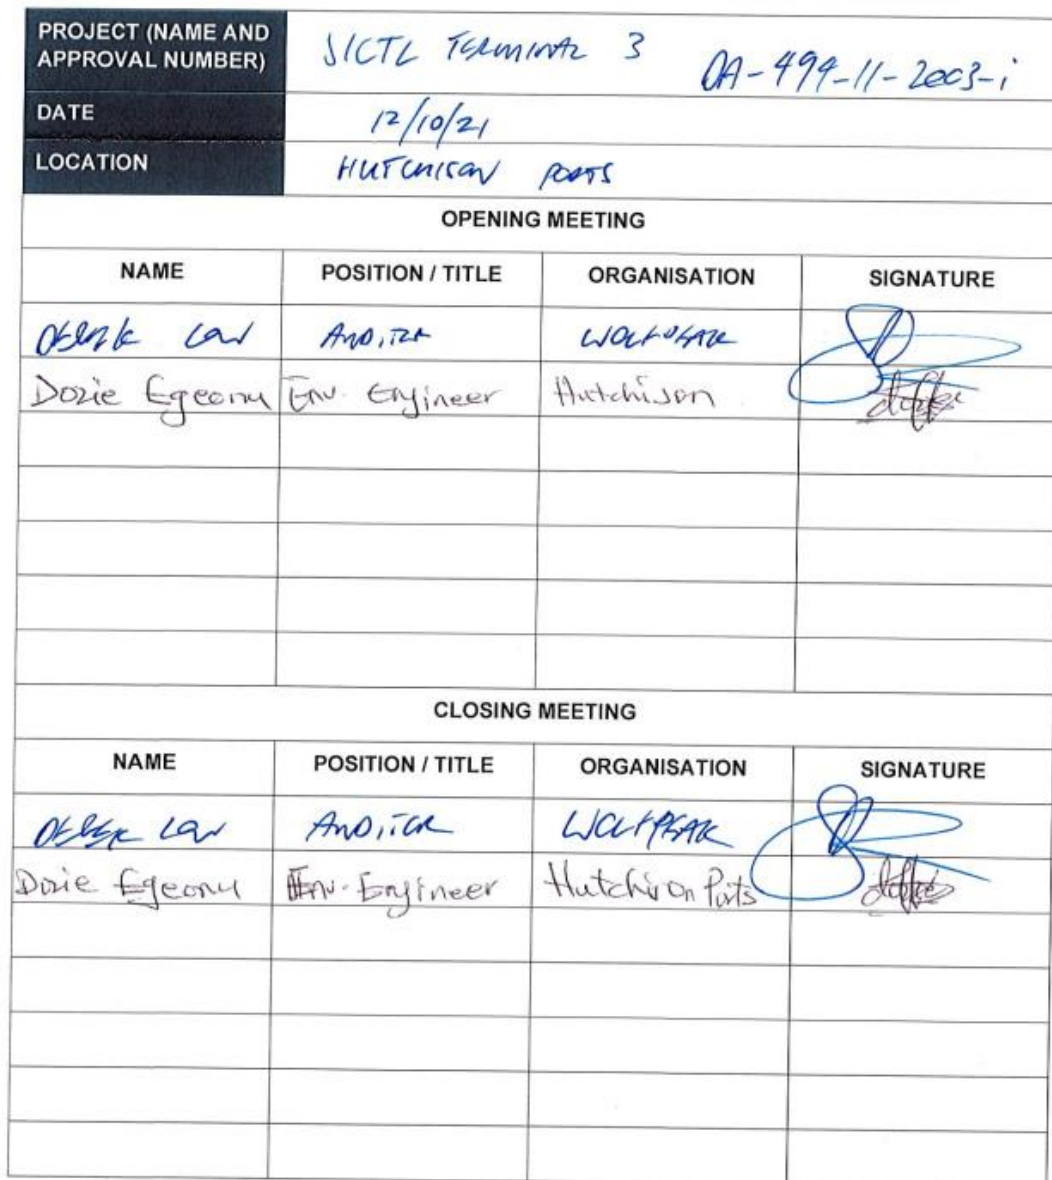 PROJECT (NAME AND APPROVAL NUMBER) SICTL TERMINAL 3 DA-494-11-2003-i
DATE 12/10/21
LOCATION HUTCHISON PORTS
OPENING MEETING
NAME POSITION / TITLE ORGANISATION SIGNATURE
DEREK LOW AUDITOR WOLFPEAK
Dozie Egeonu Env. Engineer Hutchison
CLOSING MEETING
NAME POSITION / TITLE ORGANISATION SIGNATURE
DEREK LOW AUDITOR WOLFPEAK
Dozie Egeonu Env. Engineer Hutchison Ports